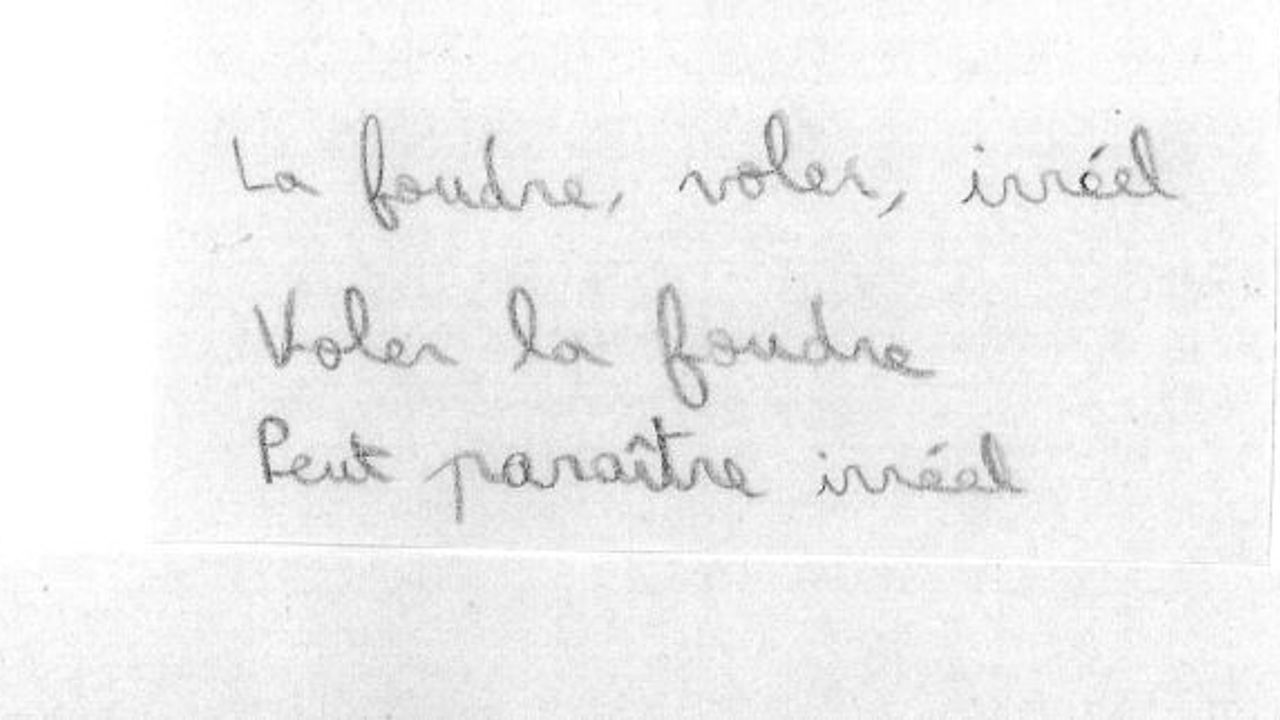 La foudre, voler, irréel
Voler la foudre
Peut paraître irréel